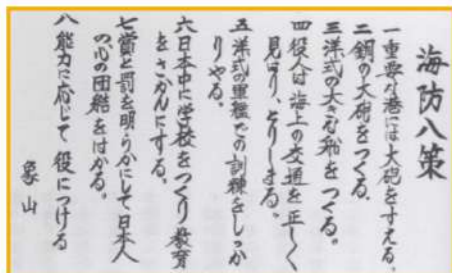 海防八策
一 重要な港には大砲をすえる。
二 銅の大砲をつくる。
三 洋式の大きな船をつくる。
四 役人は海上の交通を正しく
見はり、とりしまる。
五 洋式の軍艦での訓練をしっか
りやる。
六 日本中に学校をつくり教育
をさかんにする。
七 賞と罰を明らかにして日本人
の心の団結をはかる。
八 能力に応じて役につける
象山